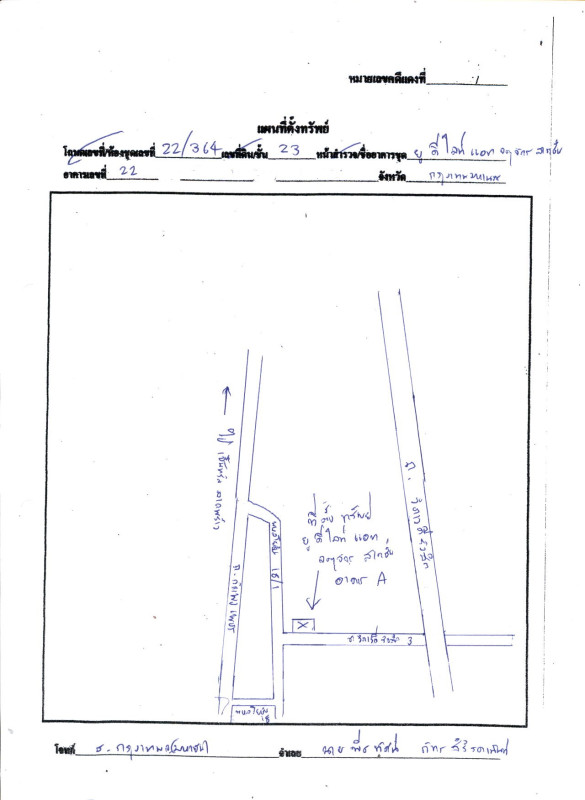 หมายเลขคดีแดงที่ /
แผนที่ตั้งทรัพย์
โฉนดเลขที่/ห้องชุดเลขที่ 22/364 เลขที่ดิน/ชั้น 23 หน้าสำรวจ/ชื่ออาคารชุด ยู ดีไลท์ แอท จตุจักร สเตชั่น
อาคารเลขที่ 22 จังหวัด กรุงเทพมหานคร
ไป เซ็นทรัล ลาดพร้าว
ที่ตั้ง ทรัพย์
ยู ดีไลท์ แอท
จตุจักร สเตชั่น
อาคาร A
ถ. วิภาวดีรังสิต
ถ. กำแพงเพชร
X
3
โจทก์ ธ. กรุงเทพ จำเลย นาย